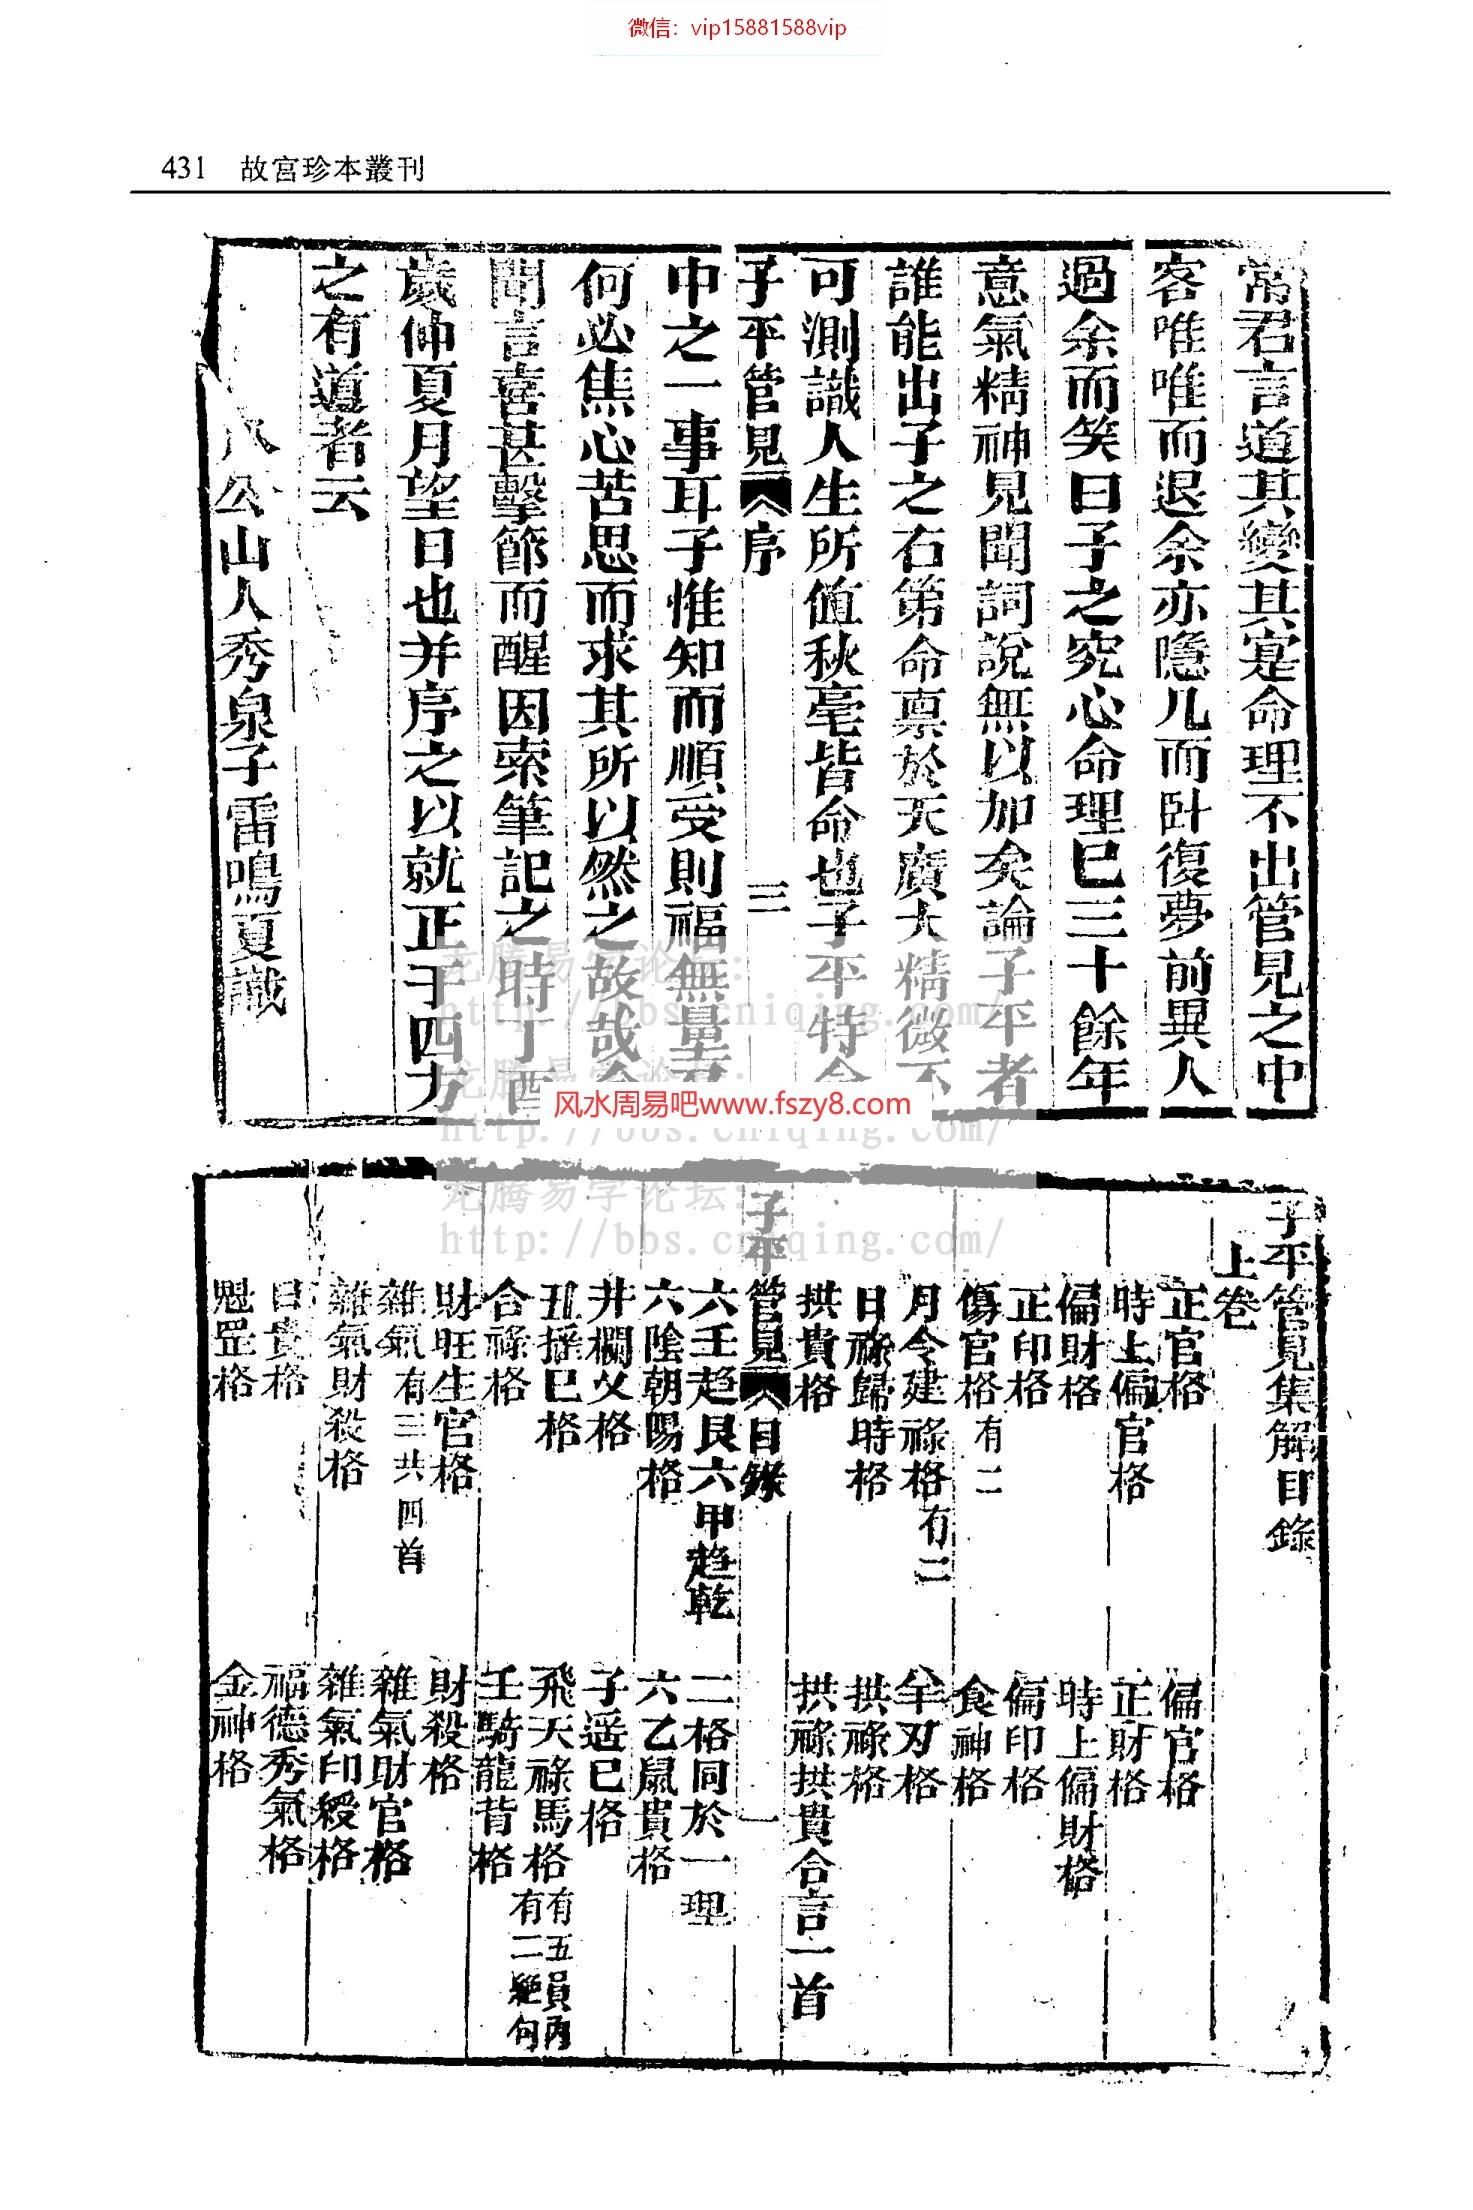 微信：vip15881588vip
431 故宮珍本叢刊
常君言道其變其寔命理不出管見之中
客唯唯而退余亦隱几而卧復夢前異人
過余而笑曰子之究心命理已三十餘年
意氣精神見聞詞說無以加矣論子平者
誰能出子之右第命禀於天廣大精微不
可測識人生所值秋毫皆命也子平特命
子平管見 序 三
中之一事耳子惟知而順受則福無量
何必焦心苦思而求其所以然之故哉
聞言喜甚擊節而醒因索筆記之時丁酉
歲仲夏月望日也并序之以就正于四方
之有道者云
公山人秀泉子雷鳴夏識
龙腾易学论坛:
http://bbs.cniqing.com/
龙腾易学论坛:
http://bbs.cniqing.com/
风水周易吧www.fszy8.com
龙腾易学论坛:
http://bbs.cniqing.com/
子平管見集解目錄
上卷
正官格 偏官格
時上偏官格 正財格
偏財格 時上偏財格
正印格 偏印格
傷官格有二 食神格
月令建祿格有二 羊刃格
日祿歸時格 拱祿格
拱貴格 拱祿拱貴合言一首
子平管見 目錄 一
六壬趨艮六甲趨乾 二格同於一理
六陰朝陽格 六乙鼠貴格
井欄叉格 子遥巳格
丑摇巳格 飛天祿馬格有五員內有二絕句
合祿格 壬騎龍背格
財旺生官格 財殺格
雜氣有三共四首 雜氣財官格
雜氣財殺格 雜氣印綬格
日貴格 福德秀氣格
魁罡格 金神格